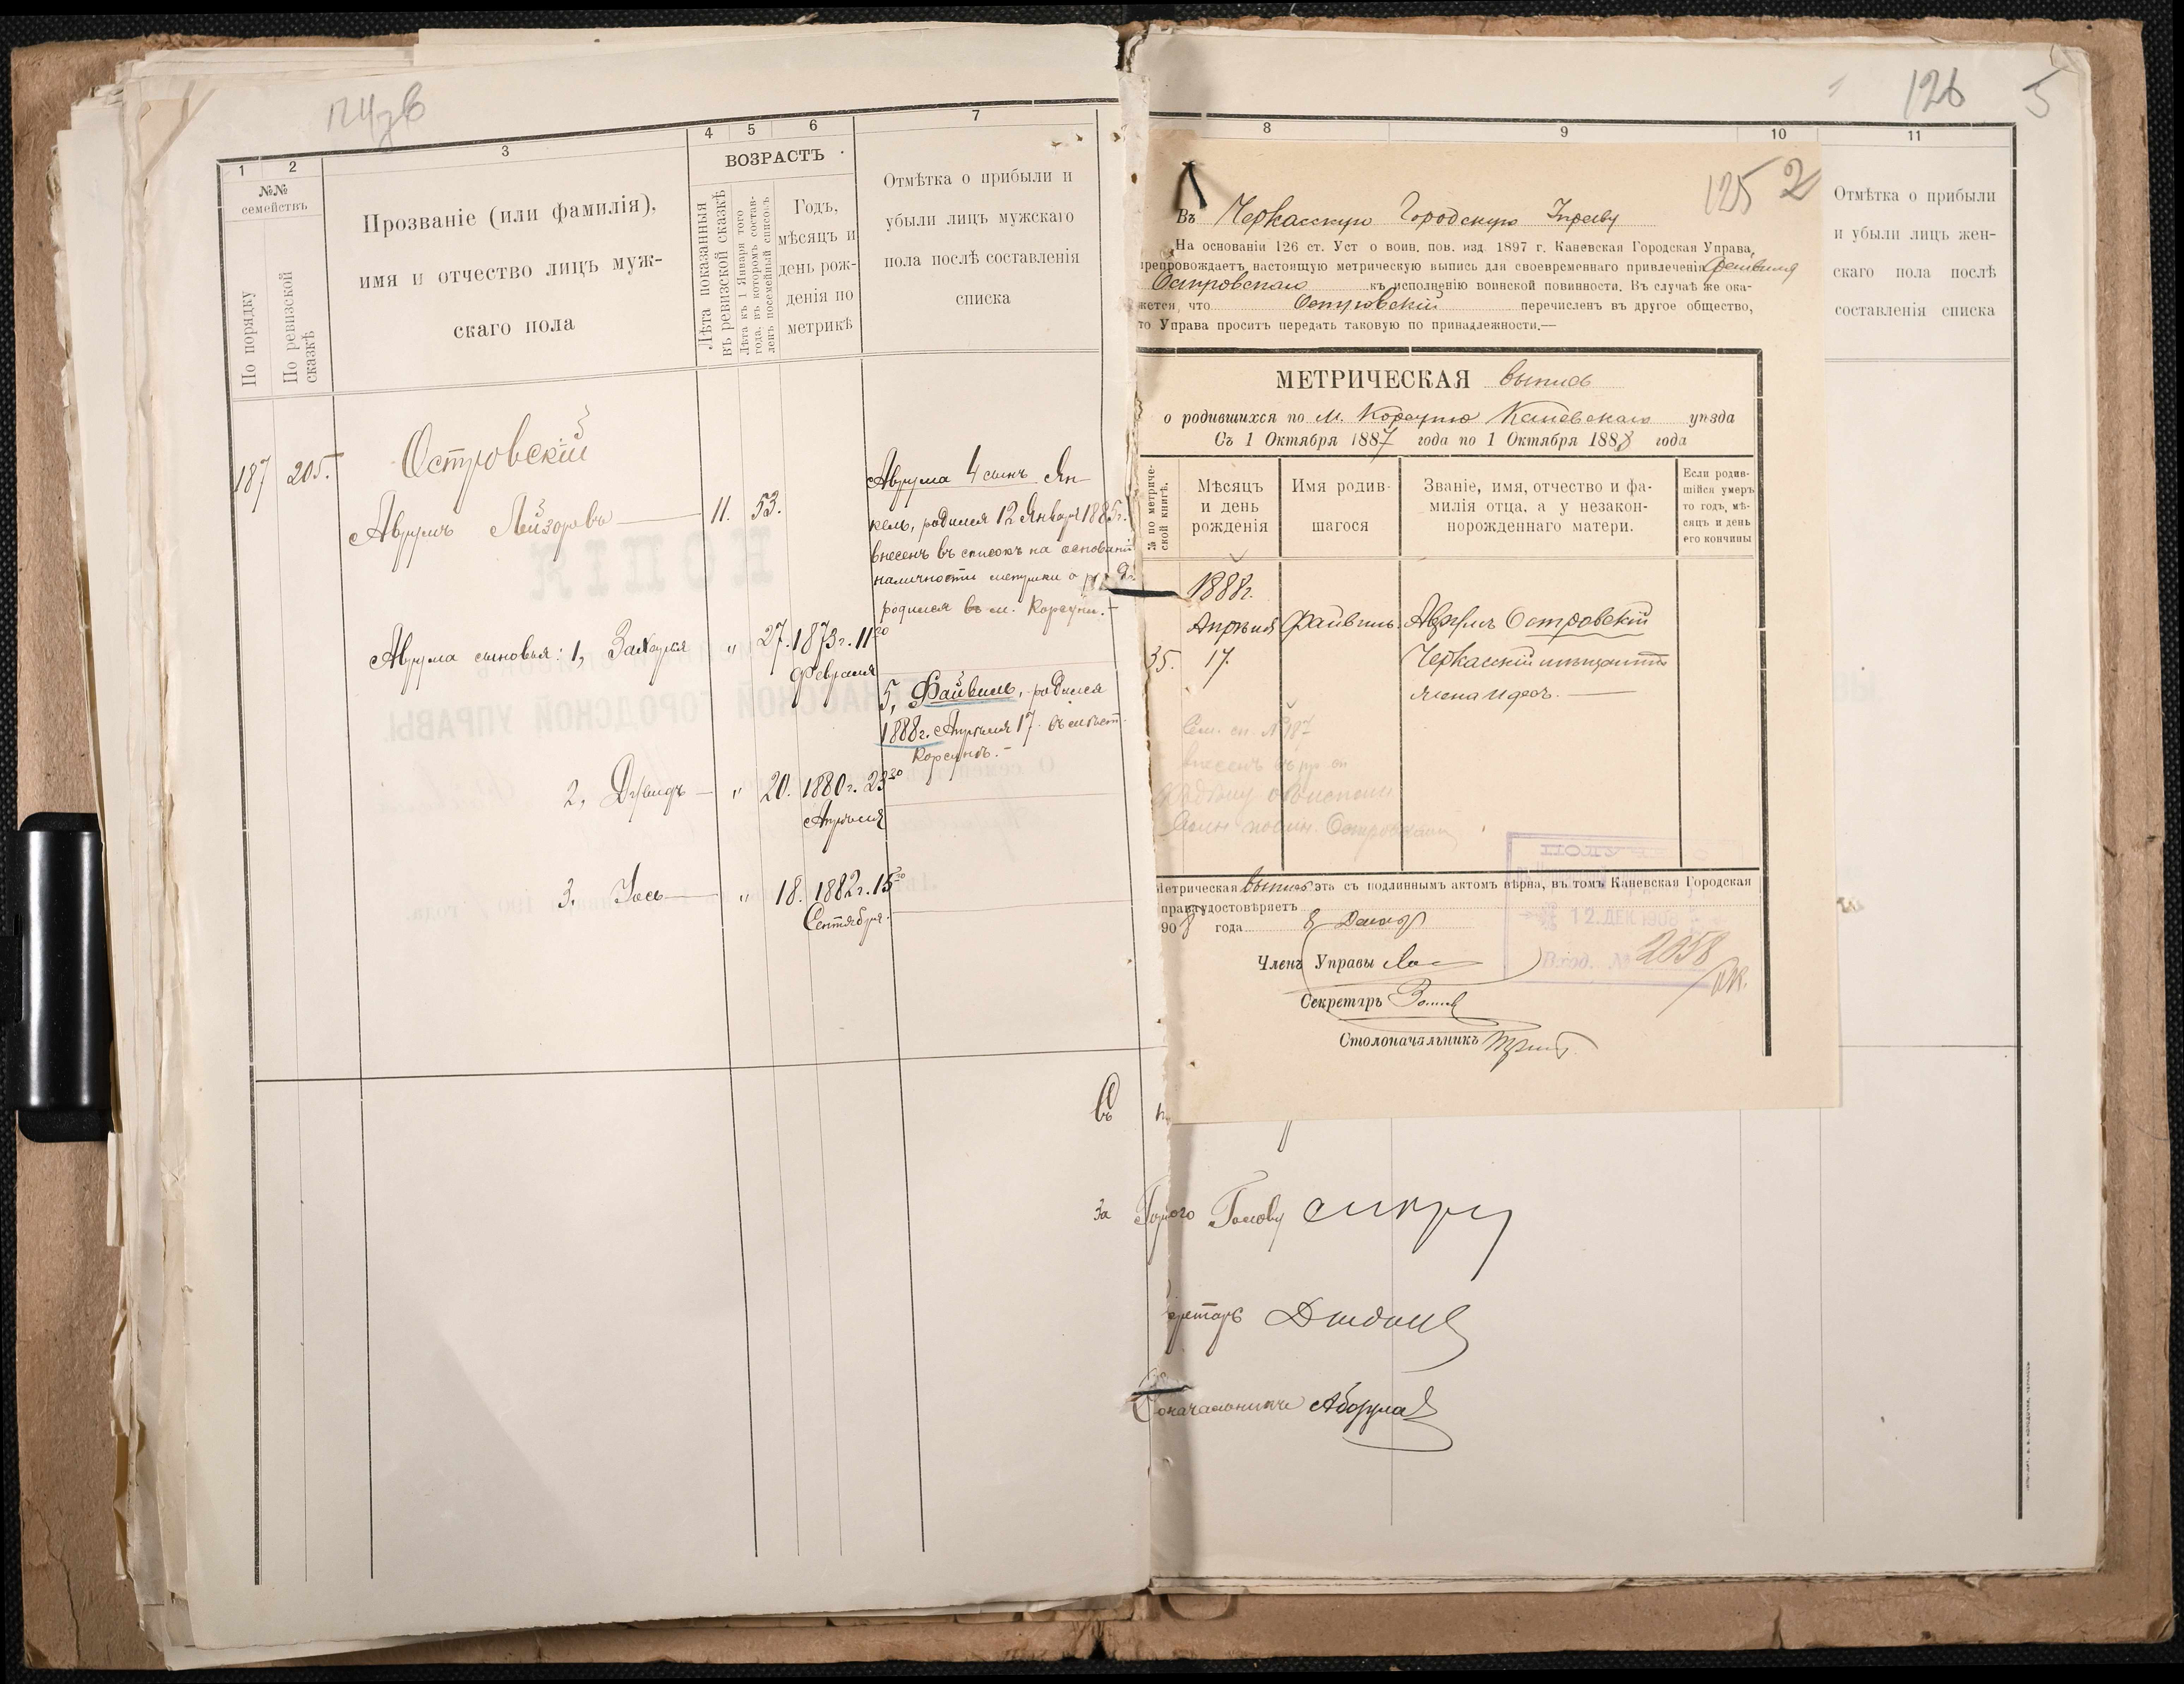 1
2
3
4
5
6
7
№№
семействъ
По порядку
По ревизской
сказкѣ
Прозваніе (или фамилія),
имя и отчество лицъ муж-
скаго пола
ВОЗРАСТЪ
Лѣта показанныя
въ ревизской сказкѣ
Лѣта къ 1 Января того
года, въ которомъ состав-
ленъ посемейный списокъ
Годъ,
мѣсяцъ и
день рож-
денія по
метрикѣ
Отмѣтка о прибыли и
убыли лицъ мужскаго
пола послѣ составленія
списка
187
205.
Островскій
Аврумъ Лейзоровъ
11.
53.
Аврума сыновья: 1, Захарья
"
27.
1873 г. 11го
Февраля
2, Дувидъ
"
20.
1880 г. 23го
Апрѣля
3, Іось
"
18.
1882 г. 15го
Сентября.
Аврума 4 сынъ Ян-
кель, родился 12 Января 1885 г.
внесенъ въ списокъ на основаніи
наличности метрики о
родился въ м. Корсуни.-
5, Файвель, родился
1888 г. Апрѣля 17 въ мѣст.
Корсунь.-
КОПІЯ
ЧЕРКАССКОЙ ГОРОДСКОЙ УПРАВЫ
8
9
10
11
126
5
125
2
Отмѣтка о прибыли
и убыли лицъ жен-
скаго пола послѣ
составленія списка
Въ Черкасскую Городскую Управу
На основаніи 126 ст. Уст о воин. пов. изд. 1897 г. Каневская Городская Управа,
препровождаетъ настоящую метрическую выпись для своевременнаго привлеченія Файвиля
Островскаго къ исполненію воинской повинности. Въ случаѣ же ока-
жется, что Островскій перечисленъ въ другое общество,
то Управа проситъ передать таковую по принадлежности.—
МЕТРИЧЕСКАЯ выпись
о родившихся по м. Корсуню Каневскаго уѣзда
Съ 1 Октября 1887 года по 1 Октября 1888 года
№ по метриче-
ской книгѣ.
Мѣсяцъ
и день
рожденія
Имя родив-
шагося
Званіе, имя, отчество и фа-
милія отца, а у незакон-
норожденнаго матери.
Если родив-
шійся умеръ
то годъ, мѣ-
сяцъ и день
его кончины
1888 г.
Апрѣля
35.
17.
Файвиль.
Аврумъ Островскій
Черкасскій мѣщанинъ
Сем. сп. № 187
внесенъ
Островскаго
Метрическая выпись эта съ подлиннымъ актомъ вѣрна, въ томъ Каневская Городская
Управа удостовѣряетъ
1908 года 8 Декабр
Членъ Управы
Секретарь
Столоначальникъ
12. ДЕК 1908
Вход. № 2058
За Город­ского Голову
Секретарь
Столоначальникъ